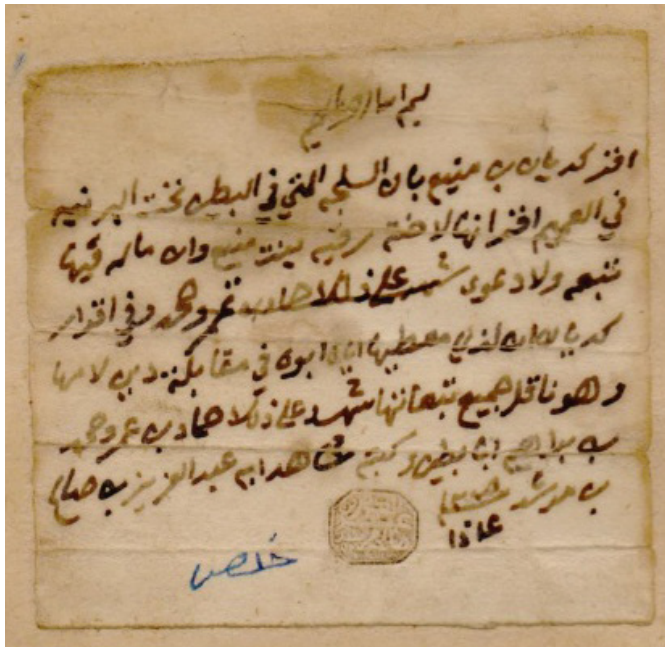 بسم الله الرحمن الرحيم
اقر كديان بن منيع بان السلجه التي في البطين تحت البرنيه
في العميم اقر انها لاخته رقيه بنت منيع وان ماله فيها
تبعه ولا دعوى شهد على ذلك حماد بن عمر ومحمد وفي اقرار
كديان ان لذي معطيها اياه ابوه في مقابلة دين لامها
وهو ناقل جميع تبعاتها شهد على ذلك حماد بن عمر ومحمد
بن براهيم ابا بطين وكتبه شاهد به عبد العزيز بن صالح
بن مرشد
خالص